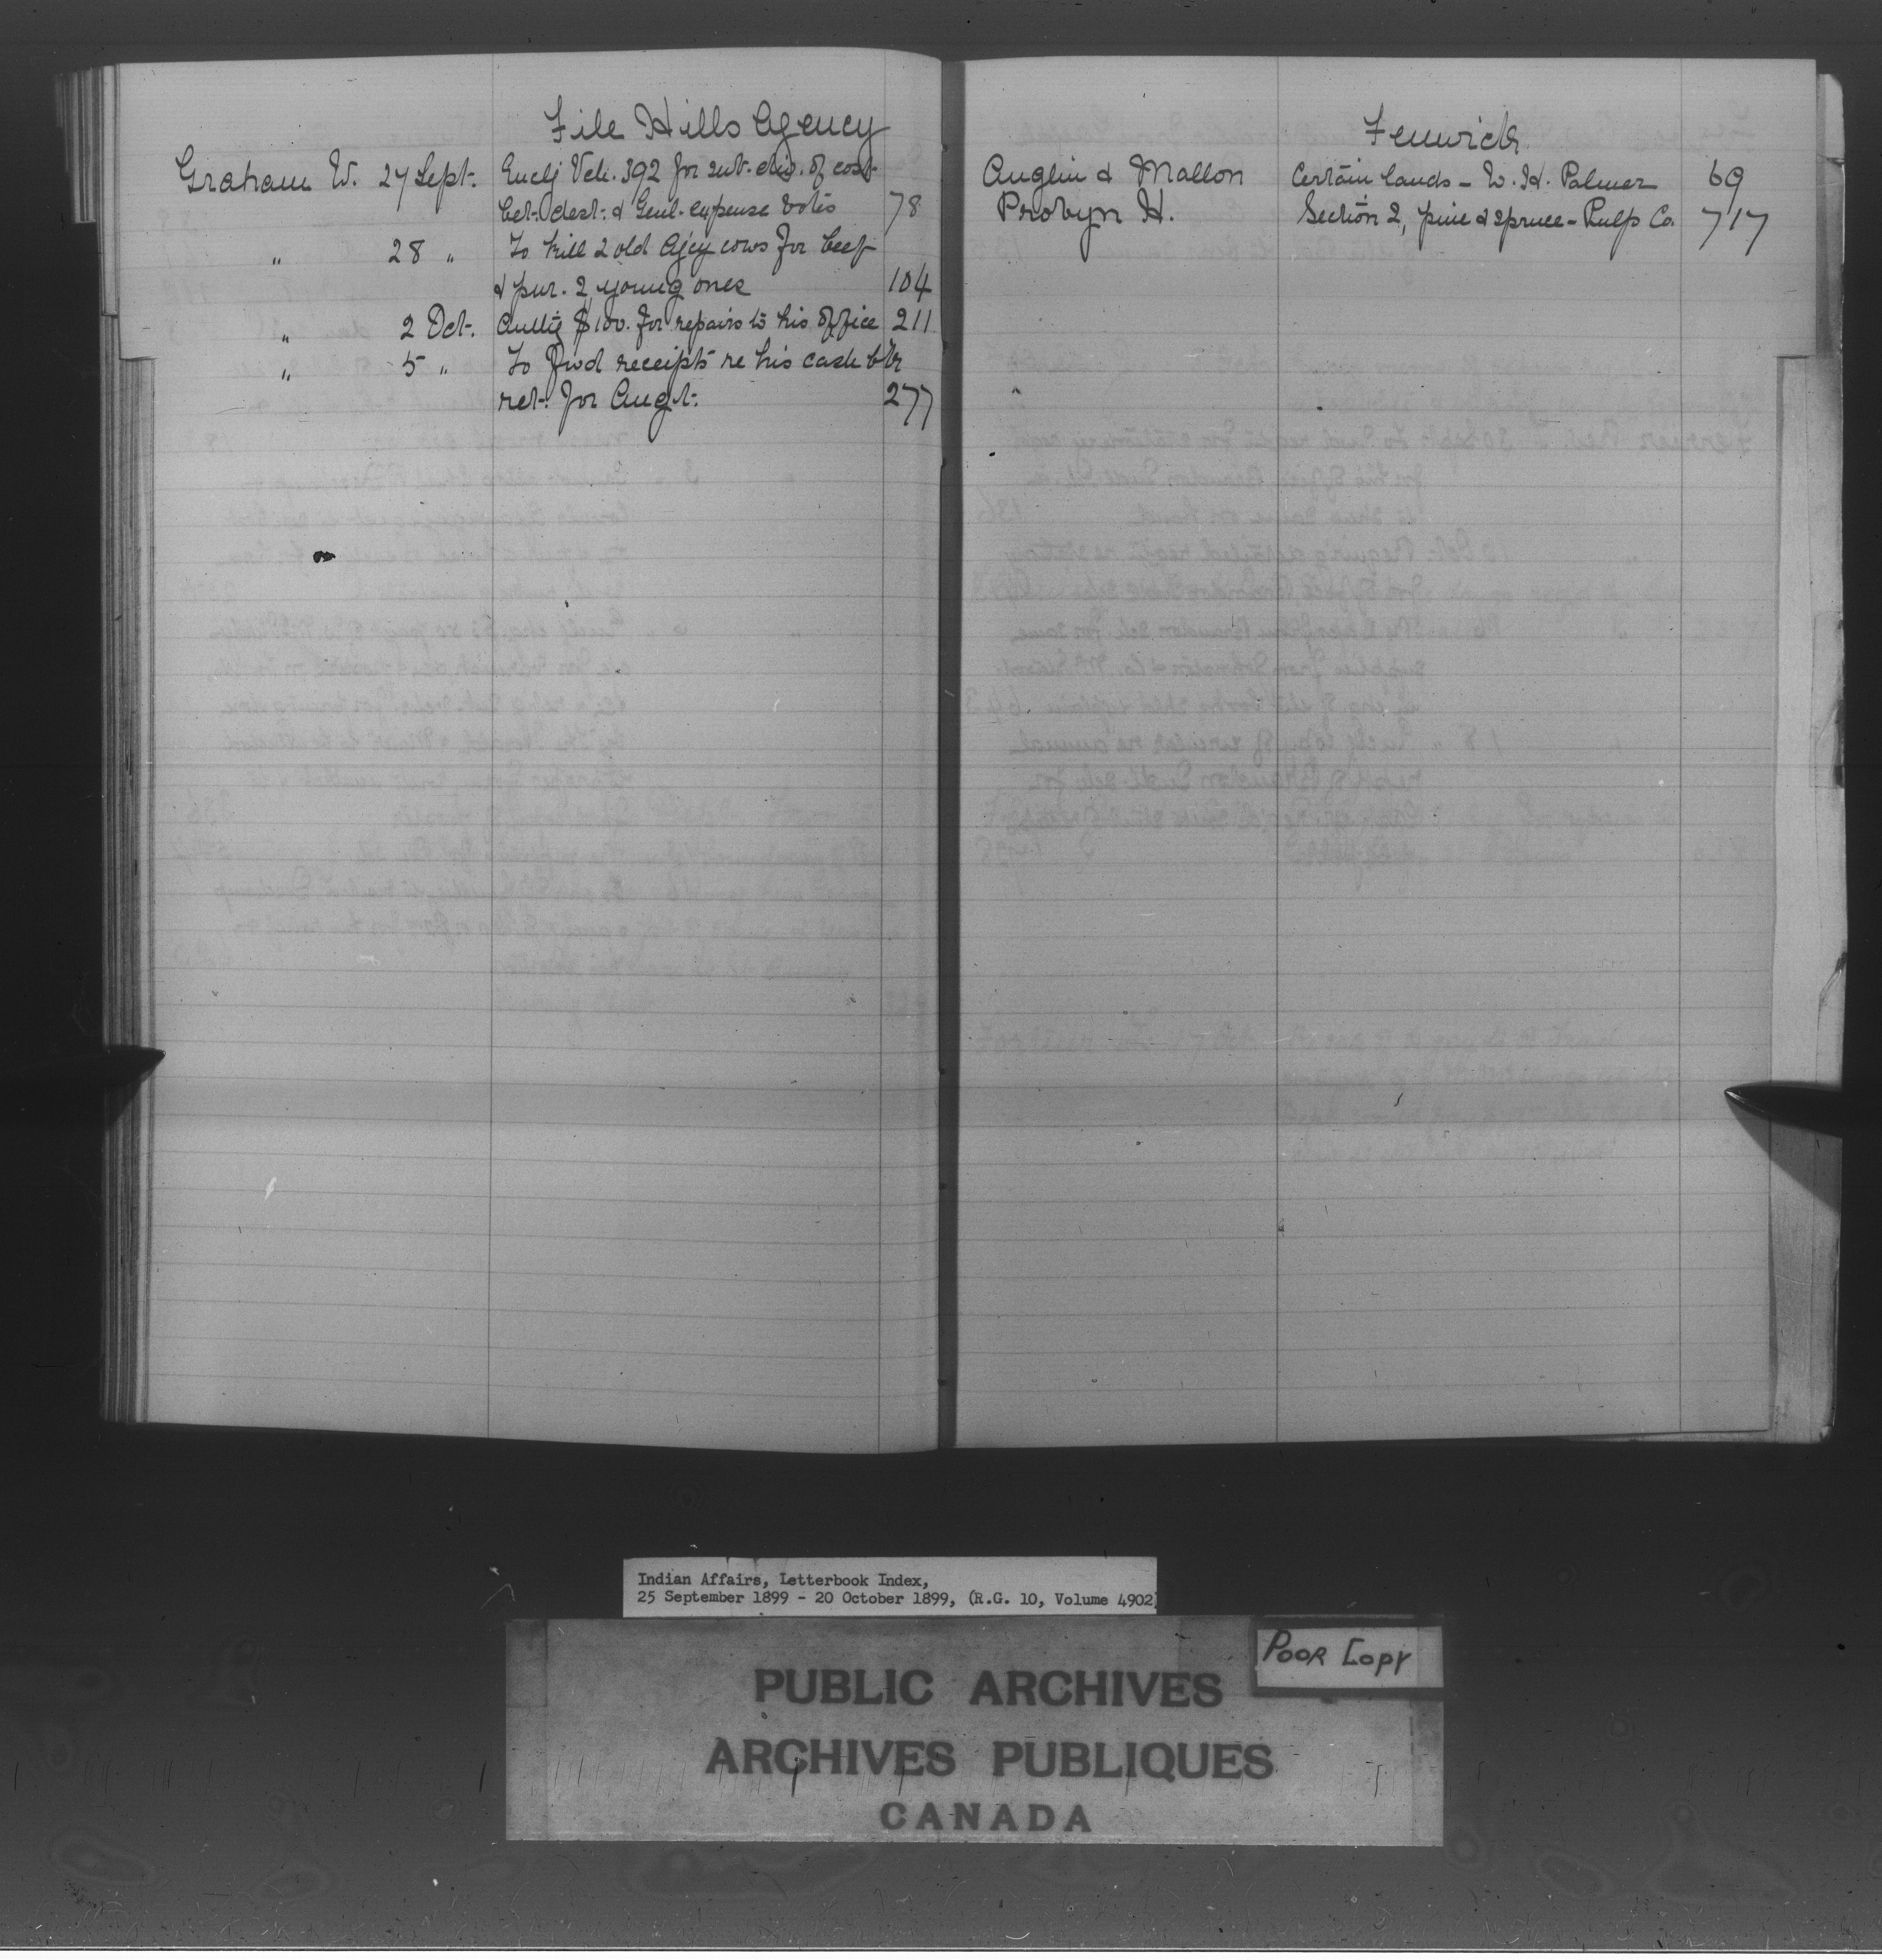 File Hills Agency
Graham W. 27 Sept. Enclg Vch. 392 for sub-div. of cost
bet. dest. & Genl. expense votes 78
" 28 " To kill 2 old Agcy cows for beef
& pur. 2 young ones 104
" 2 Oct. Authg $100. for repairs to his office 211
" 5 " To fwd receipts re his cash
ret. for Augt. 277
Fenwick
Anglin & Mallon Certain lands - W. H. Palmer 69
Probyn H. Section 2, pine & spruce - Pulp Co. 717
Indian Affairs, Letterbook Index,
25 September 1899 - 20 October 1899, (R.G. 10, Volume 4902)
POOR COPY
PUBLIC ARCHIVES
ARCHIVES PUBLIQUES
CANADA